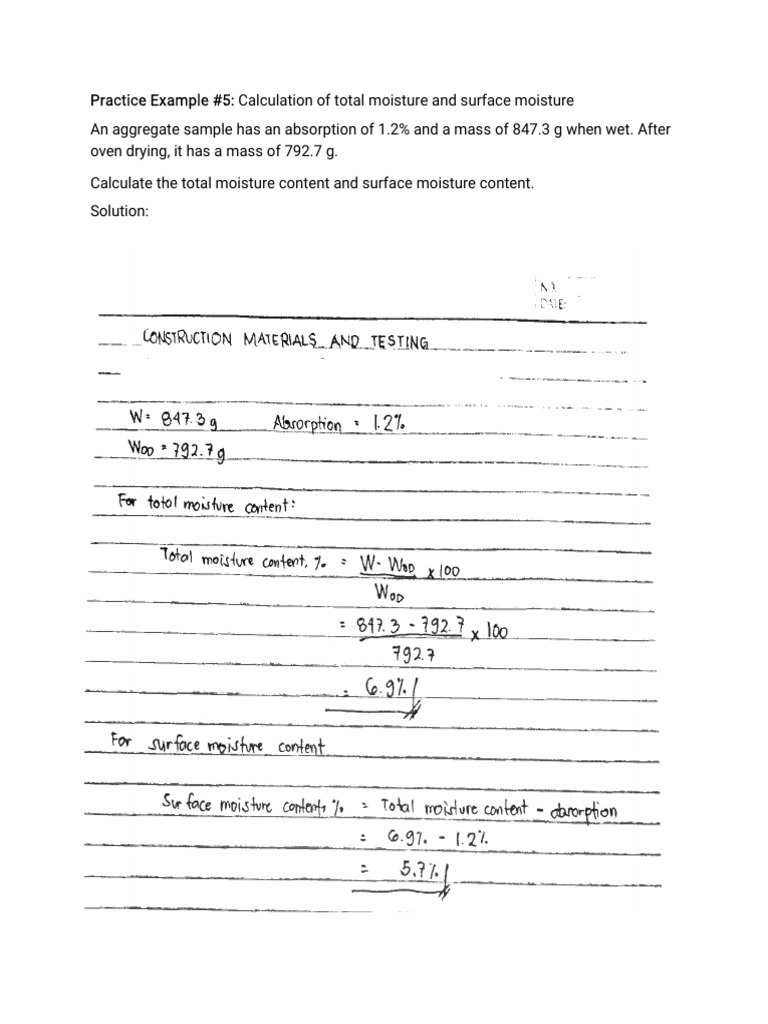 Practice Example #5: Calculation of total moisture and surface moisture
An aggregate sample has an absorption of 1.2% and a mass of 847.3 g when wet. After
oven drying, it has a mass of 792.7 g.
Calculate the total moisture content and surface moisture content.
Solution:
DATE:
CONSTRUCTION MATERIALS AND TESTING
W= 847.3g Absorption = 1.2%
WOD = 792.7g
For total moisture content:
Total moisture content, % = W- WOD x 100
WOD
= 847.3 - 792.7 x 100
792.7
= 6.9%
For surface moisture content
Surface moisture content, % = Total moisture content - absorption
= 6.9% - 1.2%
= 5.7%